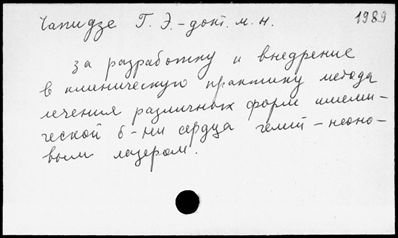 Чапидзе Г. Э. – докт. м. н. 1989
за разработку и внедрение
в клиническую практику метода
лечения различных форм ишеми-
ческой б-ни сердца гелий-неоно-
вым лазером.